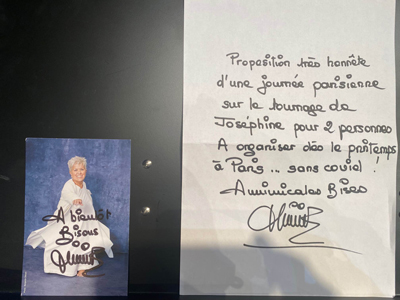 A bientôt
Bisous
Mimie
Proposition très honnête
d'une journée parisienne
sur le tournage de
Joséphine pour 2 personnes
A organiser dès le printemps
à Paris... sans covid !
Amimicales Bises
Mimie